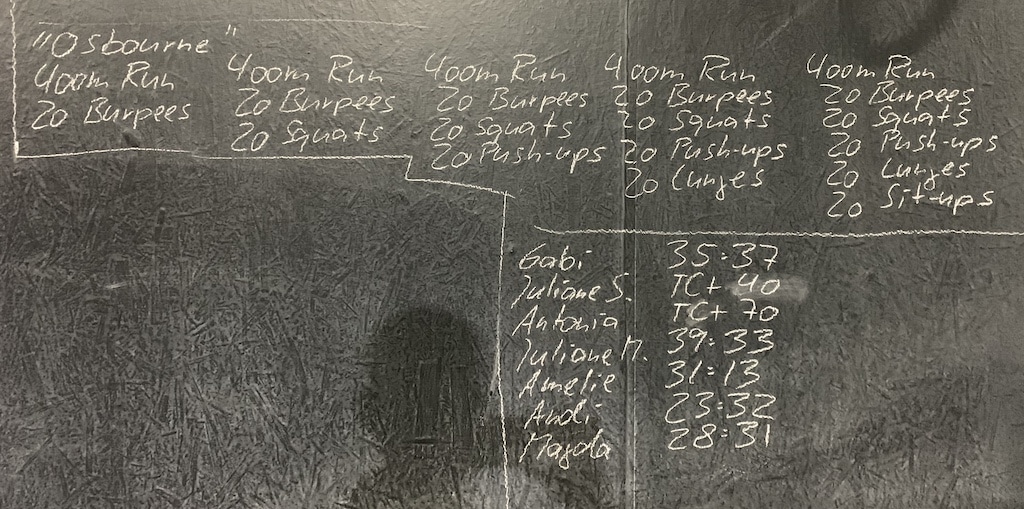 "Osbourne"
400m Run
20 Burpees
400m Run
20 Burpees
20 Squats
400m Run
20 Burpees
20 Squats
20 Push-ups
400m Run
20 Burpees
20 Squats
20 Push-ups
20 Lunges
400m Run
20 Burpees
20 Squats
20 Push-ups
20 Lunges
20 Sit-ups
Gabi 35:37
Juliane S. TC+ 40
Antonia TC+ 70
Juliane M. 39:33
Amelie 31:13
Andi 23:32
Magda 28:31